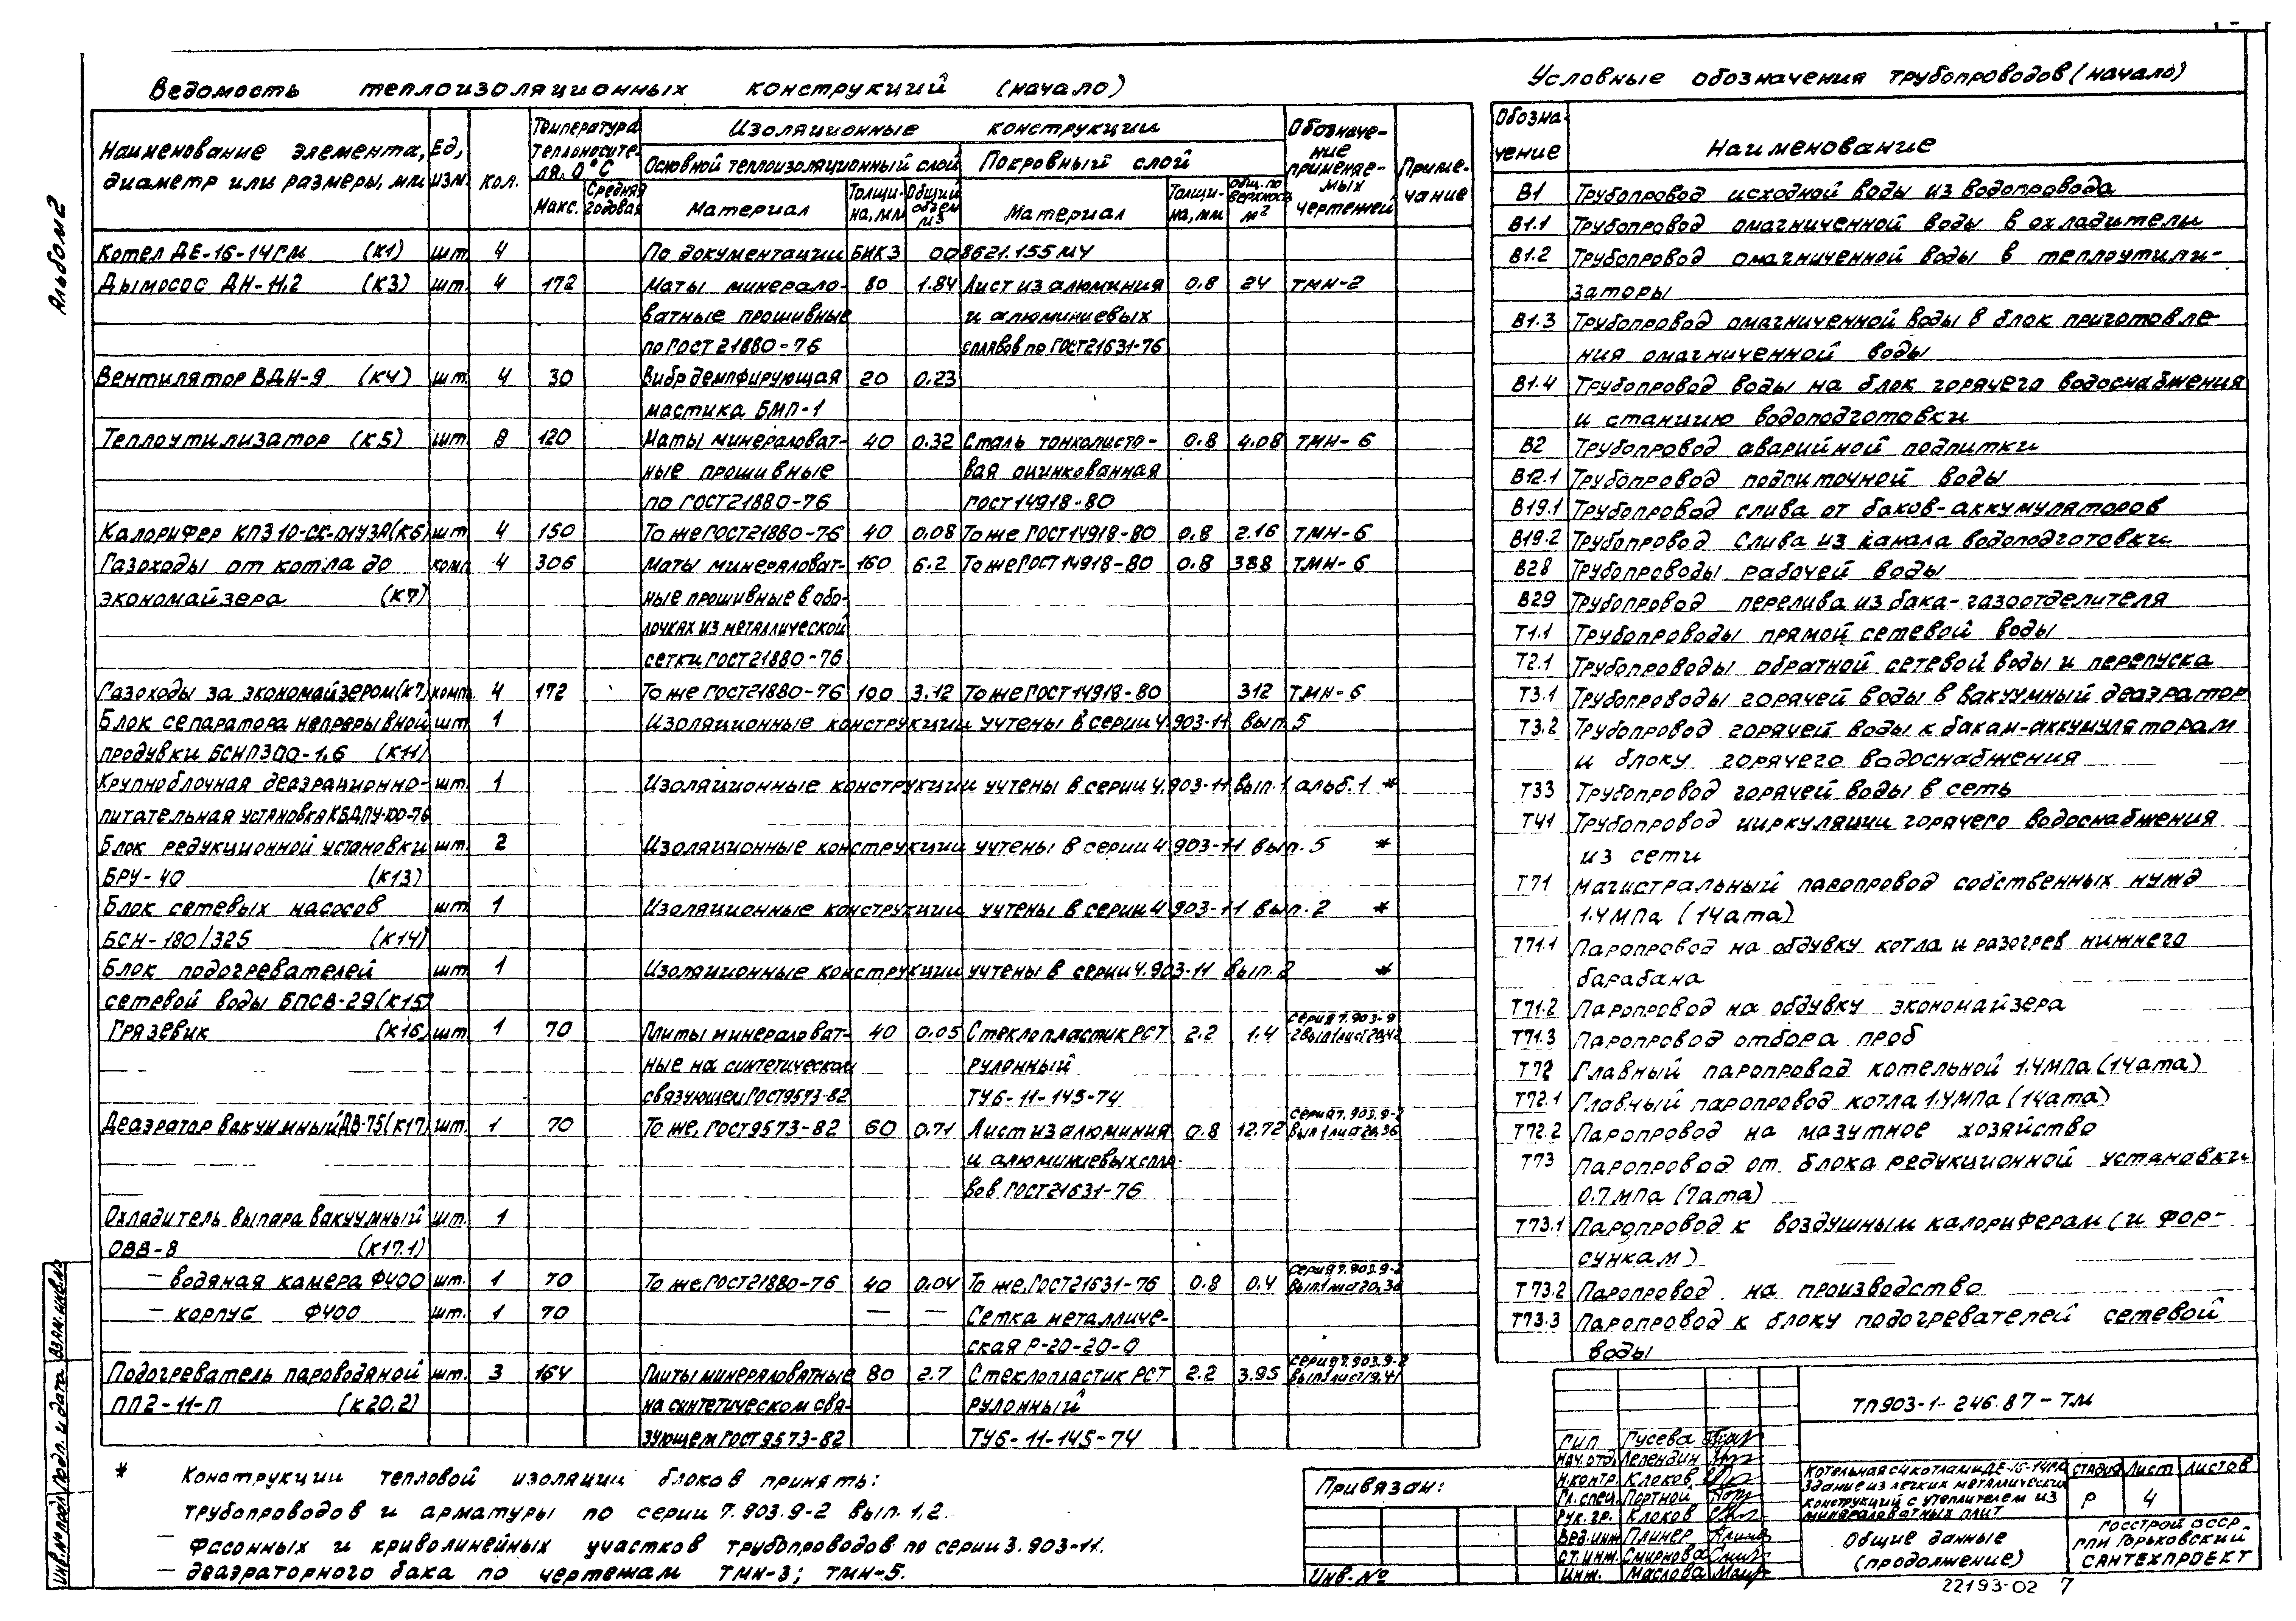 Альбом 2
Ведомость теплоизоляционных конструкций (начало)
Наименование элемента, диаметр или размеры, мм | Ед. изм. | Кол. | Температура теплоносителя, 0°С | Изоляционные конструкции | Обозначение применяемых чертежей | Примечание
Макс. | Средняя годовая | Основной теплоизоляционный слой | Покровный слой
Материал | Толщина, мм | Общий объем м3 | Материал | Толщина, мм | Общ. поверхность м2
Котел ДЕ-16-14ГМ (К1) шт. 4 По документации БНКЗ 008621.155 МЧ
Дымосос ДН-11,2 (К3) шт. 4 172 Маты минерало- 80 1.84 Лист из алюминия 0.8 24 ТМН-2
ватные прошивные и алюминиевых
по ГОСТ 21880-76 сплавов по ГОСТ 21631-76
Вентилятор ВДН-9 (К4) шт. 4 30 Вибродемпфирующая 20 0.23
мастика БМП-1
Теплоутилизатор (К5) шт. 8 120 Маты минераловат- 40 0.32 Сталь тонколисто- 0.8 4.08 ТМН-6
ные прошивные вая оцинкованная
по ГОСТ 21880-76 ГОСТ 14918-80
Калорифер КПЗ10-СК-01УЗА (К6) шт 4 150 То же ГОСТ 21880-76 40 0.08 То же ГОСТ 14918-80 0.8 2.16 ТМН-6
Газоходы от котла до комп 4 306 Маты минераловат- 160 6.2 То же ГОСТ 14918-80 0.8 388 ТМН-6
экономайзера (К7) ные прошивные в обо-
лочках из металлической
сетки ГОСТ 21880-76
Газоходы за экономайзером (К7) комп. 4 172 То же ГОСТ 21880-76 100 3.12 То же ГОСТ 14918-80 312 ТМН-6
Блок сепаратора непрерывной шт. 1 Изоляционные конструкции учтены в серии 4.903-11 вып. 5
продувки БСНП300-1,6 (К11)
Крупноблочная деаэрационно- шт. 1 Изоляционные конструкции учтены в серии 4.903-11 вып. 1 альб. 1 *
питательная установка КБДПУ-100-76
Блок редукционной установки шт. 2 Изоляционные конструкции учтены в серии 4.903-11 вып. 5 *
БРУ-40 (К13)
Блок сетевых насосов шт. 1 Изоляционные конструкции учтены в серии 4.903-11 вып. 2 *
БСН-180/325 (К14)
Блок подогревателей шт. 1 Изоляционные конструкции учтены в серии 4.903-11 вып. 8 *
сетевой воды БПСВ-29 (К15)
Грязевик (К16) шт. 1 70 Плиты минераловат- 40 0.05 Стеклопластик РСТ 2.2 1.4 серия 7.903.9-2 вып 1 лист 20,42
ные на синтетическом рулонный
связующем ГОСТ 9573-82 ТУ6-11-145-74
Деаэратор вакуумный ДВ-75 (К17) шт. 1 70 То же, ГОСТ 9573-82 60 0.71 Лист из алюминия 0.8 12.72 серия 7.903.9-2 вып 1 лист 20,36
и алюминиевых спла-
вов ГОСТ 21631-76
Охладитель выпара вакуумный шт. 1
ОВВ-8 (К17.1)
— водяная камера Ф400 шт. 1 70 То же, ГОСТ 21880-76 40 0.04 То же, ГОСТ 21631-76 0.8 0.4 серия 7.903.9-2 вып. 1 лист 20,36
— корпус Ф400 шт. 1 70 — — Сетка металличе-
ская Р-20-20-0
Подогреватель пароводяной шт. 3 164 Плиты минераловатные 80 2.7 Стеклопластик РСТ 2.2 3.95 серия 7.903.9-2 вып 1 лист 19,41
ПП2-11-П (К20.2) на синтетическом свя- рулонный
зующем ГОСТ 9573-82 ТУ6-11-145-74
* Конструкции тепловой изоляции блоков принять:
трубопроводов и арматуры по серии 7.903.9-2 вып. 1,2.
— фасонных и криволинейных участков трубопроводов по серии 3.903-11.
— деаэраторного бака по чертежам ТМН-3; ТМН-5.
Условные обозначения трубопроводов (начало)
Обозначение | Наименование
В1 Трубопровод исходной воды из водопровода
В1.1 Трубопровод омагниченной воды в охладители
В1.2 Трубопровод омагниченной воды в теплоутили-
заторы
В1.3 Трубопровод омагниченной воды в блок приготовле-
ния омагниченной воды
В1.4 Трубопровод воды на блок горячего водоснабжения
и станцию водоподготовки
В2 Трубопровод аварийной подпитки
В12.1 Трубопровод подпиточной воды
В19.1 Трубопровод слива от баков-аккумуляторов
В19.2 Трубопровод слива из канала водоподготовки
В28 Трубопроводы рабочей воды
В29 Трубопровод перелива из бака-газоотделителя
Т1.1 Трубопроводы прямой сетевой воды
Т2.1 Трубопроводы обратной сетевой воды и перепуска
Т3.1 Трубопроводы горячей воды в вакуумный деаэратор
Т3.2 Трубопровод горячей воды к бакам-аккумуляторам
и блоку горячего водоснабжения
Т33 Трубопровод горячей воды в сеть
Т41 Трубопровод циркуляции горячего водоснабжения
из сети
Т71 Магистральный паропровод собственных нужд
1.4 МПа (14 ата)
Т71.1 Паропровод на обдувку котла и разогрев нижнего
барабана
Т71.2 Паропровод на обдувку экономайзера
Т71.3 Паропровод отбора проб
Т72 Главный паропровод котельной 1.4 МПа (14 ата)
Т72.1 Главный паропровод котла 1.4 МПа (14 ата)
Т72.2 Паропровод на мазутное хозяйство
Т73 Паропровод от блока редукционной установки
0.7 МПа (7 ата)
Т73.1 Паропровод к воздушным калориферам (и фор-
сункам)
Т73.2 Паропровод на производство
Т73.3 Паропровод к блоку подогревателей сетевой
воды
Привязан:
Инв. №
ТП 903-1-246.87-ТМ
ГИП Гусева
Нач. отд. Лелендин
Н.контр. Клоков
Гл. спец. Портной
Рук. гр. Клоков
Вед. инж. Плинер
Ст. инж. Смирнова
Инж. Маслова
Котельная с 4 котлами ДЕ-16-14ГМ
Здание из легких металлических
конструкций с утеплителем из
минераловатных плит
Стадия Лист Листов
Р 4
Общие данные
(продолжение)
Госстрой СССР
ГПИ Горьковский
САНТЕХПРОЕКТ
22193-02 7
Инв. № подл. Подп. и дата Взам. инв. №